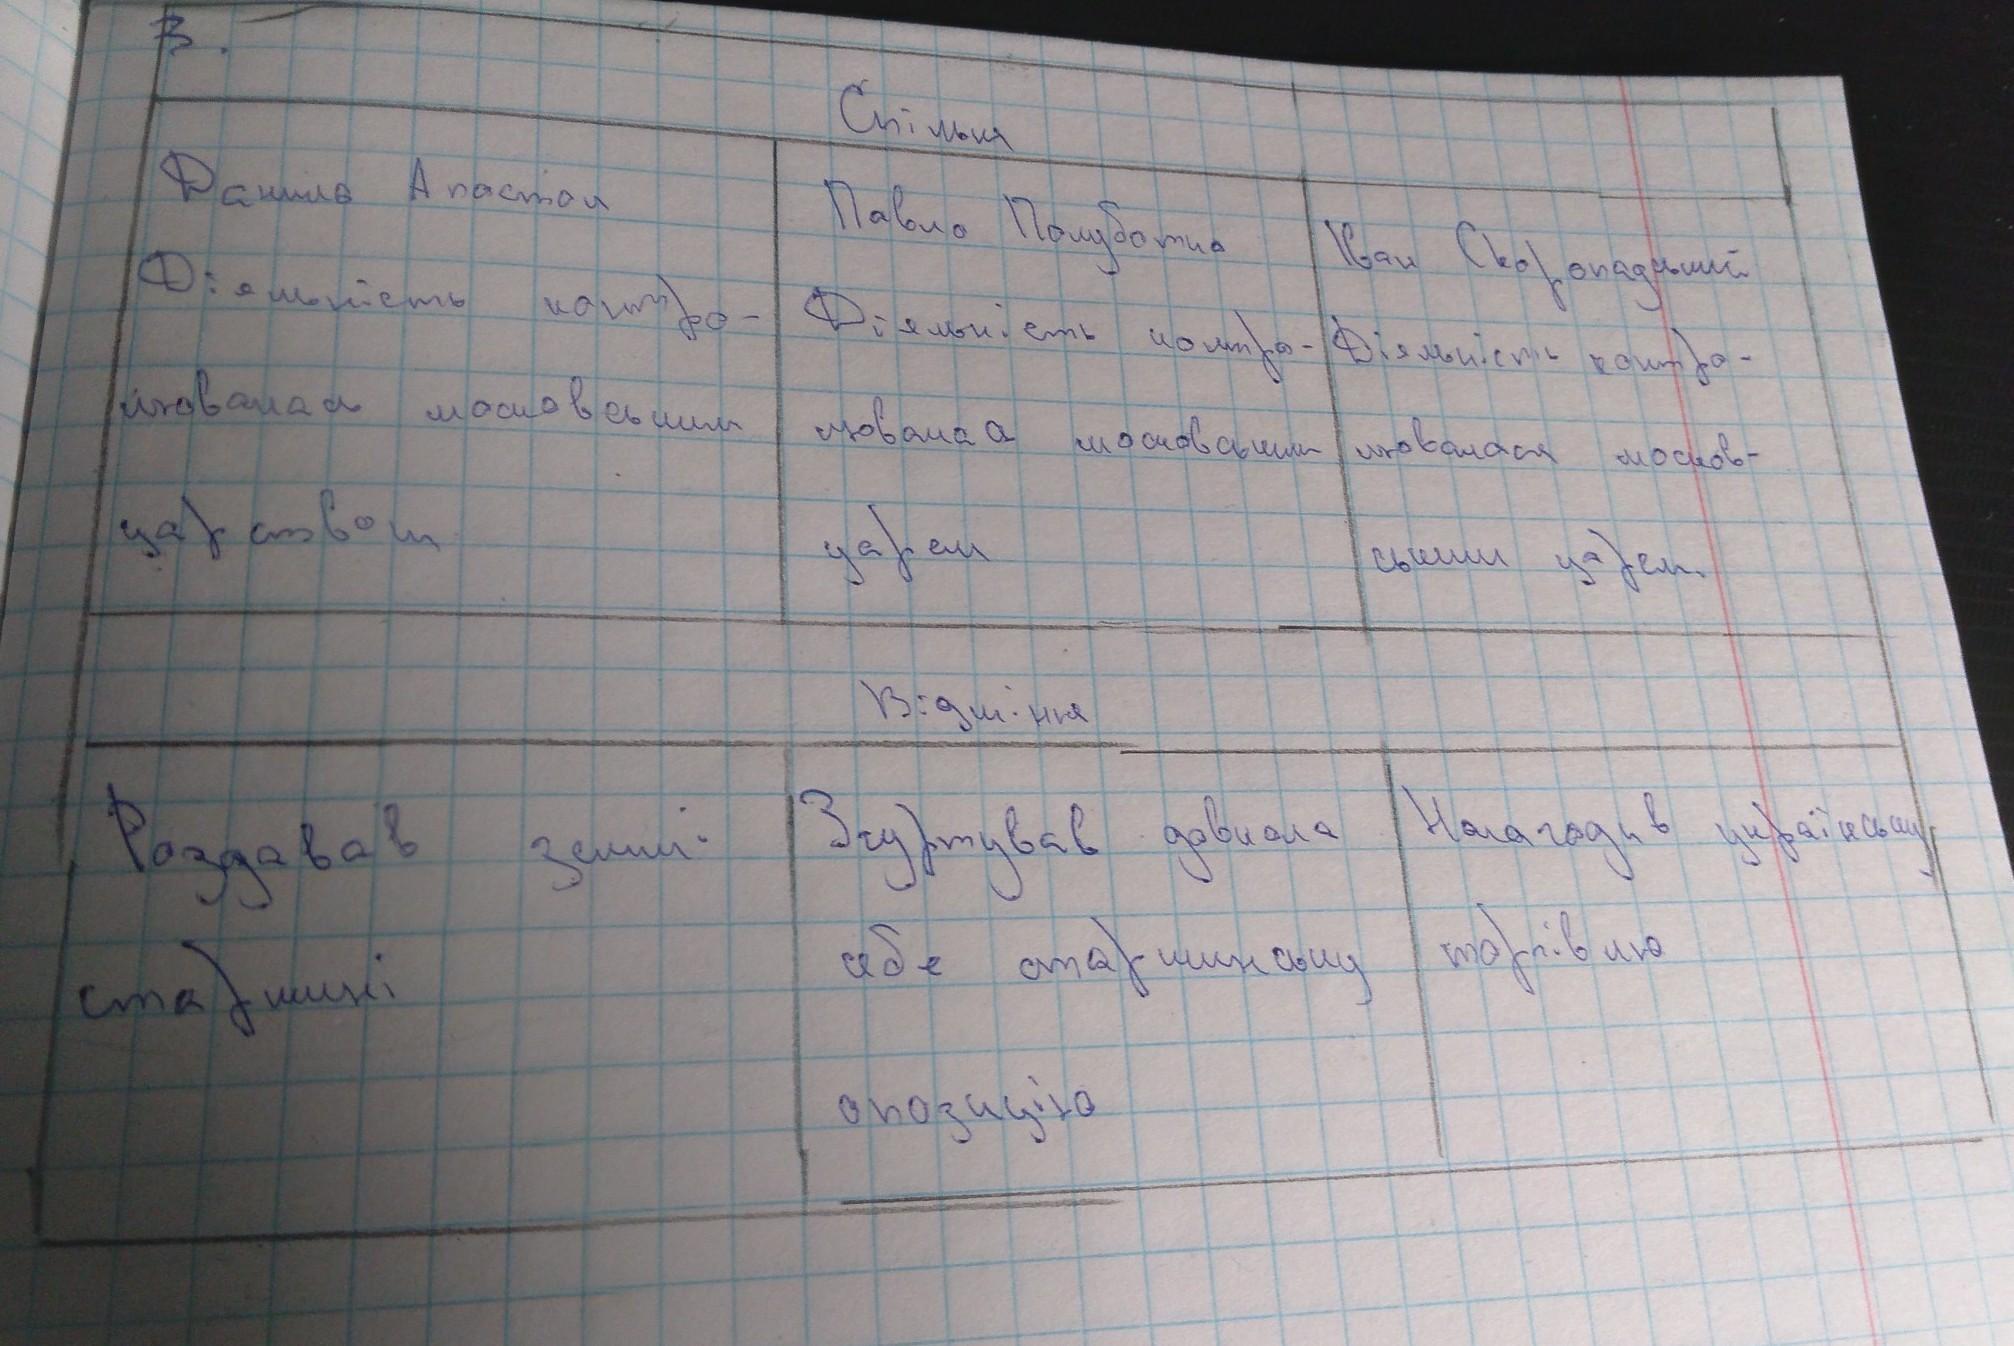 3.
Спільня
Данило Апостол
Павло Полуботко
Іван Скоропадський
Діяльність контро-
лювалася московським
царством
Діяльність контро-
лювалася московським
царем
Діяльність контро-
лювалася москов-
ським царем.
Відміння
Роздавав землі
старшині
Згуртував довкола
себе старшинську
опозицію
Налагодив українську
торгівлю